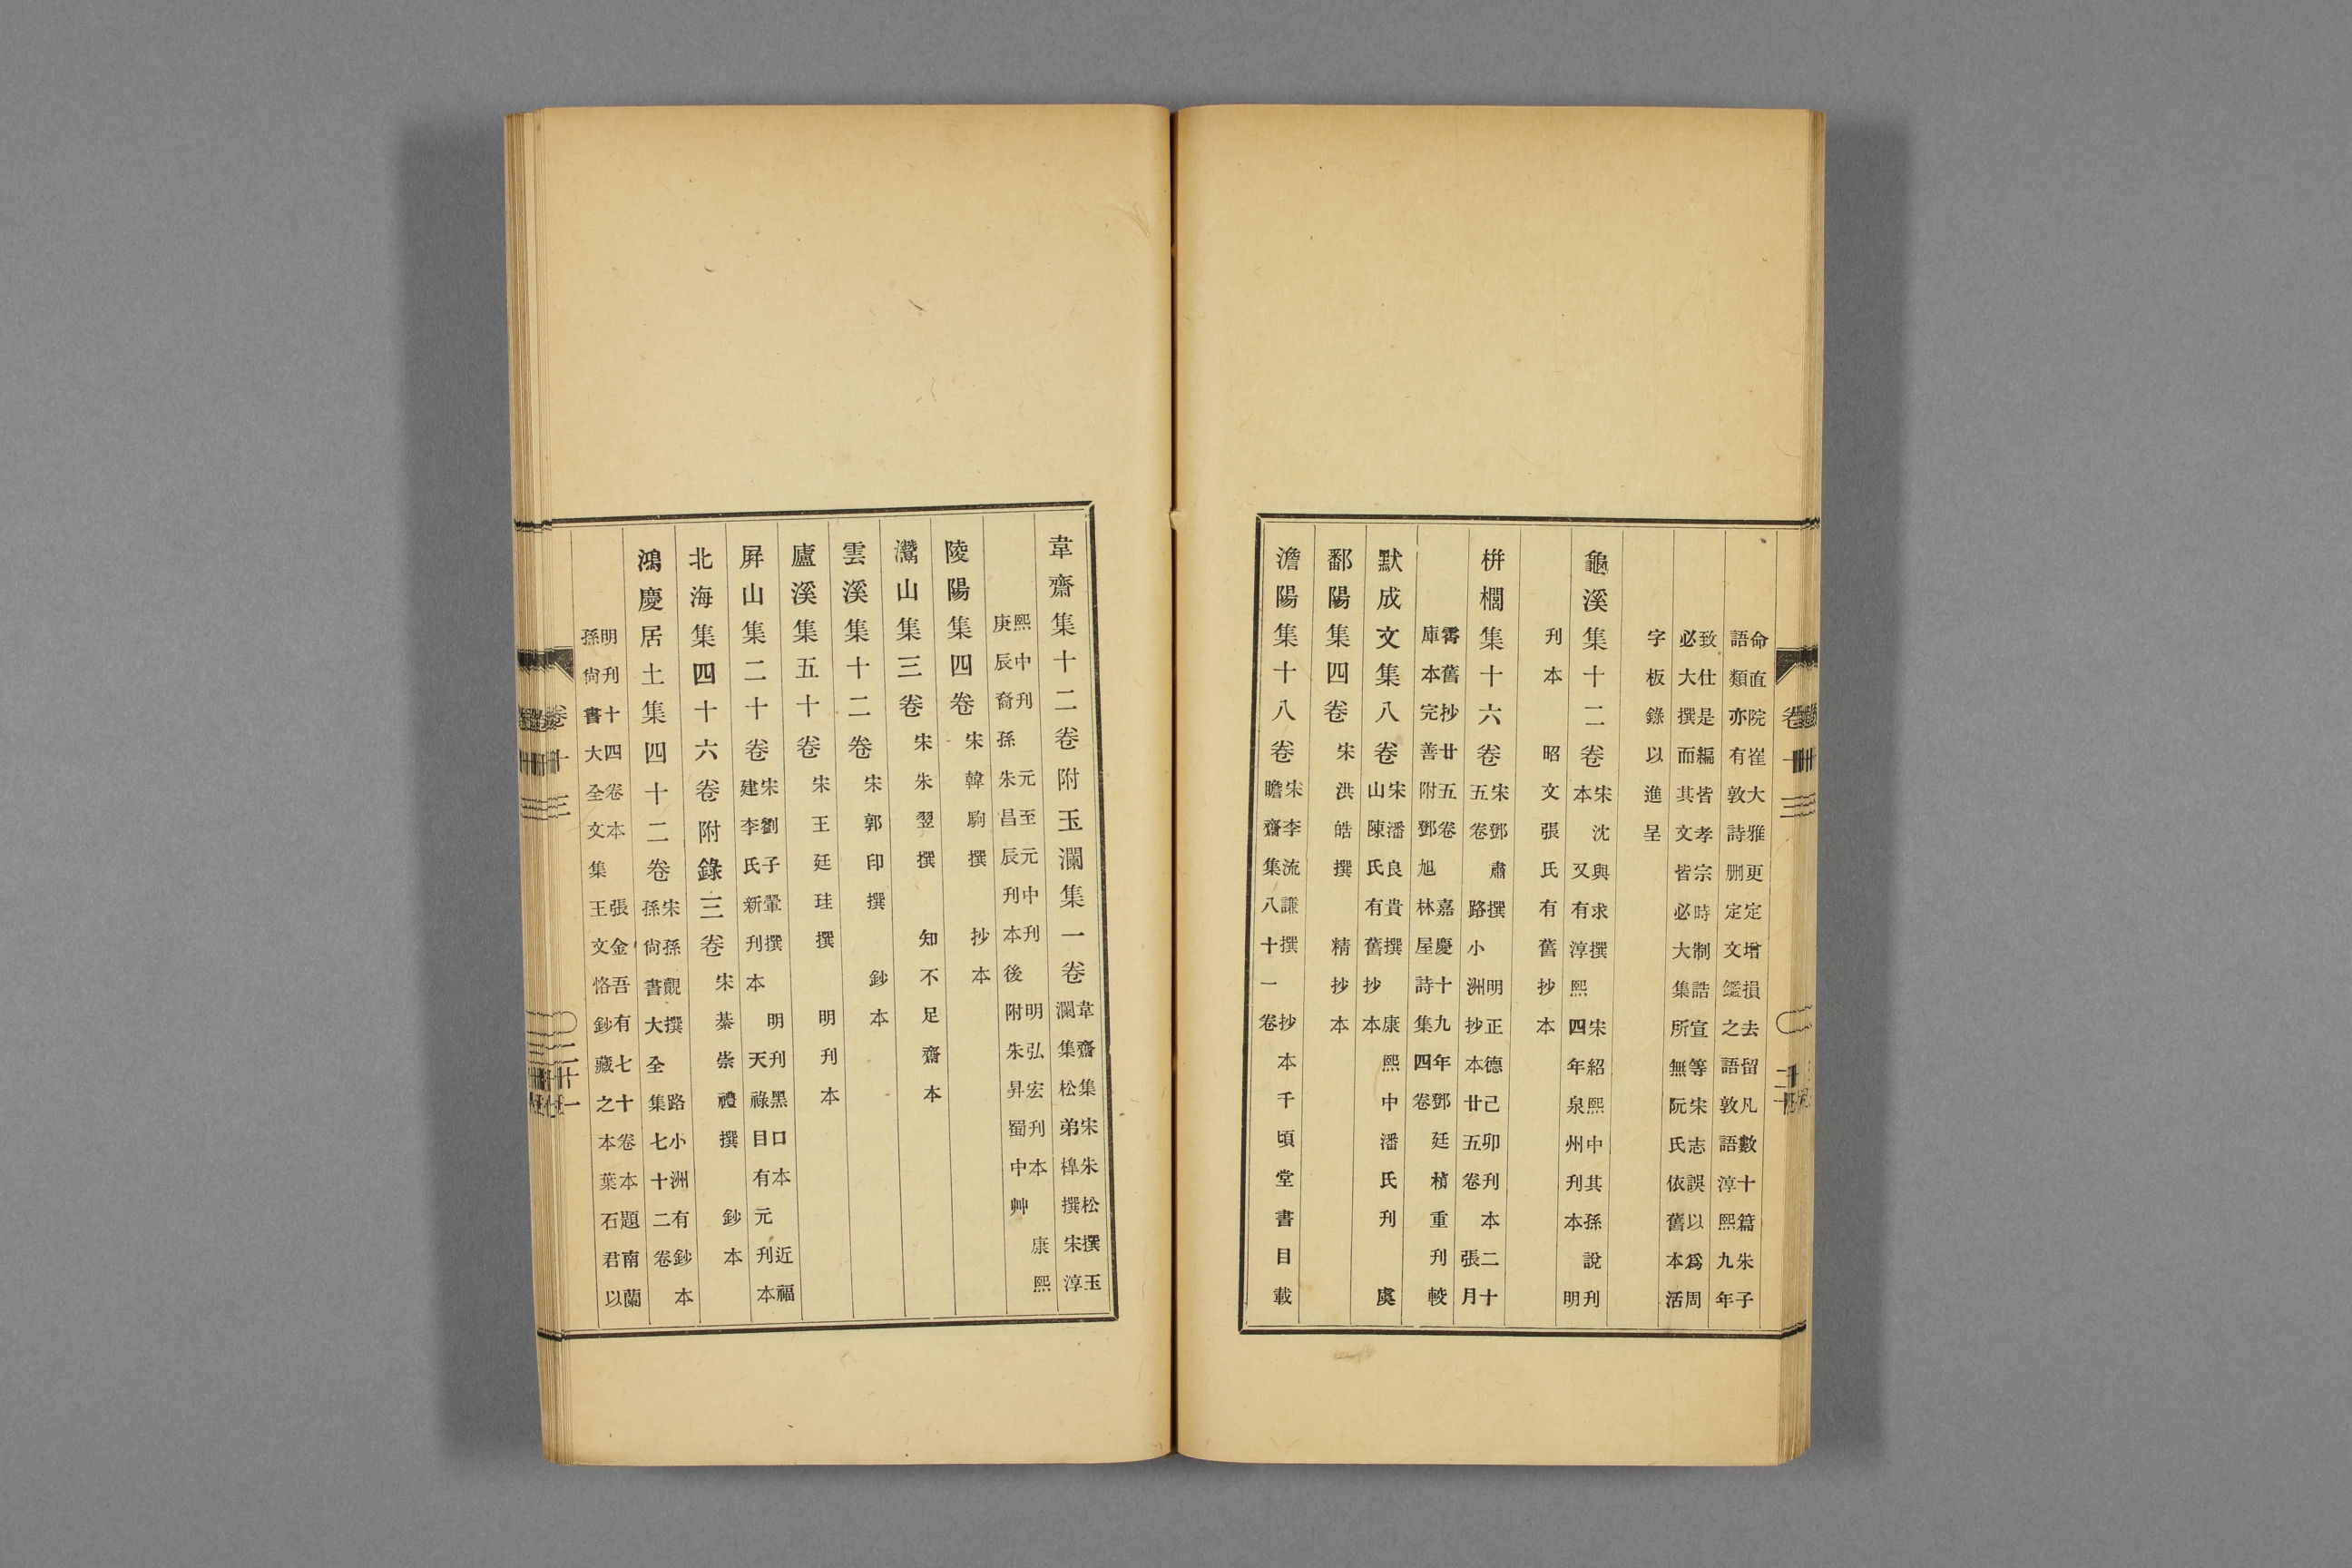 命直院崔大雅更定增損去留凡數十篇朱子
語類亦有敦詩删定文鑑之語敦語淳熙九年
致仕是編皆孝宗時制誥宣等宋志誤以爲周
必大撰而其文皆必大集所無阮氏依舊本活
字板錄以進呈
龜溪集十二卷 宋沈與求撰 宋紹熙中其孫說刊
本 又有淳熙四年泉州刊本 明
刊本 昭文張氏有舊抄本
栟櫚集十六卷 宋鄧肅撰 明正德己卯刊本二十
五卷 路小洲抄本廿五卷 張月
霄舊抄廿五卷 嘉慶十九年鄧廷楨重刊較
庫本完善附鄧旭林屋詩集四卷
默成文集八卷 宋潘良貴撰 康熙中潘氏刊 虞
山陳氏有舊抄本
鄱陽集四卷 宋洪皓撰 精抄本
澹陽集十八卷 宋李流謙撰 抄本 千頃堂書目載
瞻齋集八十一卷
韋齋集十二卷附玉瀾集一卷 韋齋集宋朱松撰玉
瀾集松弟槔撰 宋淳
熙中刊 元至元中刊 明弘宏刊本 康熙
庚辰裔孫朱昌辰刊本後附朱昇蜀中艸
陵陽集四卷 宋韓駒撰 抄本
灊山集三卷 宋朱翌撰 知不足齋本
雲溪集十二卷 宋郭印撰 鈔本
廬溪集五十卷 宋王廷珪撰 明刊本
屏山集二十卷 宋劉子翬撰 明刊黑口本 近福
建李氏新刊本 天祿目有元刊本
北海集四十六卷附錄三卷 宋綦崇禮撰 鈔本
鴻慶居士集四十二卷 宋孫覿撰 路小洲有鈔本
孫尙書大全集七十二卷
明刊十四卷本 張金吾有七十卷本題南蘭
孫尙書大全文集 王文恪鈔藏之本葉石君以
卷十三
二十一